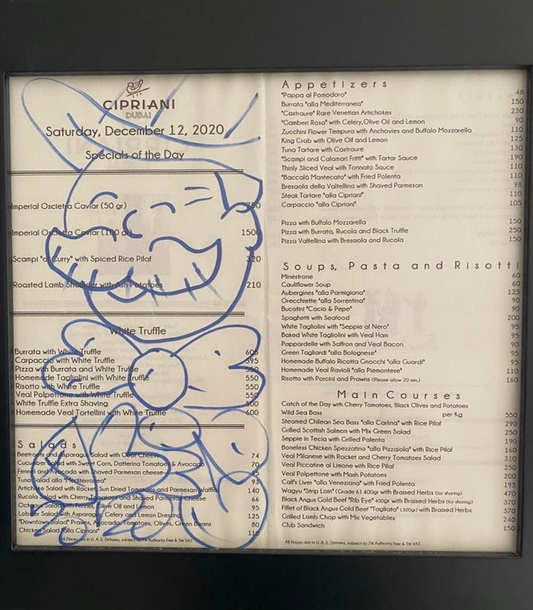 CIPRIANI
DUBAI
Saturday, December 12, 2020
Specials of the Day
Imperial Oscietra Caviar (50 gr) 750
Imperial Oscietra Caviar (100 gr) 1500
Scampi "al Curry" with Spiced Rice Pilaf 320
Roasted Lamb Shoulder with Ash Potatoes 210
White Truffle
Burrata with White Truffle 605
Carpaccio with White Truffle 595
Pizza with Burrata and White Truffle 550
Homemade Tagliolini with White Truffle 550
Risotto with White Truffle 550
Veal Polpettone with White Truffle 550
White Truffle Extra Shaving
Homemade Veal Tortellini with White Truffle 600
Salads
Beetroots and Asparagus Salad with Goat Cheese 74
Cucumber Salad with Sweet Corn, Datterino Tomatoes & Avocado 70
Fennel and Avocado with Shaved Parmesan cheese
Tuna Salad 95
Artichoke Salad with Rocket, Sun Dried Tomatoes and Parmesan Waffle 140
Rucola Salad with Cherry Tomatoes and Shaved Parmesan Cheese 66
Octopus Salad with Olive Oil and Lemon 95
Lobster Salad with Asparagus, Celery and Lemon Dressing 125
"Downtown Salad" Prawns, Avocado, Tomatoes, Olives, Green Beans 80
Chicken Salad "alla Cipriani" 110
All Prices are in U.A.E. Dirhams, subject to 7% Authority Fee & 5% VAT
Appetizers
"Pappa al Pomodoro" 48
Burrata "alla Mediterranea" 150
"Castraure" Rare Venetian Artichokes 230
"Gamberi Rosa" with Celery,Olive Oil and Lemon 90
Zucchini Flower Tempura with Anchovies and Buffalo Mozzarella 110
King Crab with Olive Oil and Lemon 125
Tuna Tartare with Castraure 130
"Scampi and Calamari Fritti" with Tartar Sauce 190
Thinly Sliced Veal with Tonnato Sauce 110
"Baccalà Mantecato" with Fried Polenta 110
Bresaola della Valtellina with Shaved Parmesan 98
Steak Tartare "alla Cipriani" 110
Carpaccio "alla Cipriani" 105
Pizza with Buffalo Mozzarella 150
Pizza with Burrata, Rucola and Black Truffle 250
Pizza Valtellina with Bresaola and Rucola 150
Soups, Pasta and Risotti
Minestrone 60
Cauliflower Soup 60
Aubergines "alla Parmigiana" 125
Orecchiette "alla Sorrentina" 90
Bucatini "Cacio & Pepe" 90
Spaghetti with Seafood 200
White Tagliolini with "Seppie al Nero" 95
Baked White Tagliolini with Veal Ham 90
Pappardelle with Saffron and Veal Bacon 90
Green Tagliardi "alla Bolognese" 95
Homemade Buffalo Ricotta Gnocchi "alla Guardi" 95
Homemade Veal Ravioli "alla Piemontese" 110
Risotto with Porcini and Prawns (Please allow 20 min.) 160
Main Courses
Catch of the Day with Cherry Tomatoes, Black Olives and Potatoes
Wild Sea Bass per Kg 550
Steamed Chilean Sea Bass "alla Carlina" with Rice Pilaf 290
Grilled Scottish Salmon with Mix Green Salad 250
Seppie in Tecia with Grilled Polenta 190
Boneless Chicken Spezzatino "alla Pizzaiola" with Rice Pilaf 160
Veal Milanese with Rocket and Cherry Tomatoes Salad 310
Veal Piccatine al Limone with Rice Pilaf 250
Veal Polpettone with Mash Potatoes 200
Calf's Liver "alla Veneziana" with Fried Polenta 195
Wagyu "Strip Loin" (Grade 6) 400gr with Braised Herbs (for sharing) 470
Black Angus Gold Beef "Rib Eye" 400gr with Braised Herbs (for sharing) 370
Fillet of Black Angus Gold Beef "Tagliata" (300gr) with Braised Herbs 370
Grilled Lamb Chop with Mix Vegetables 240
Club Sandwich 150
All Prices are in U.A.E. Dirhams, subject to 7% Authority Fee & 5% VAT